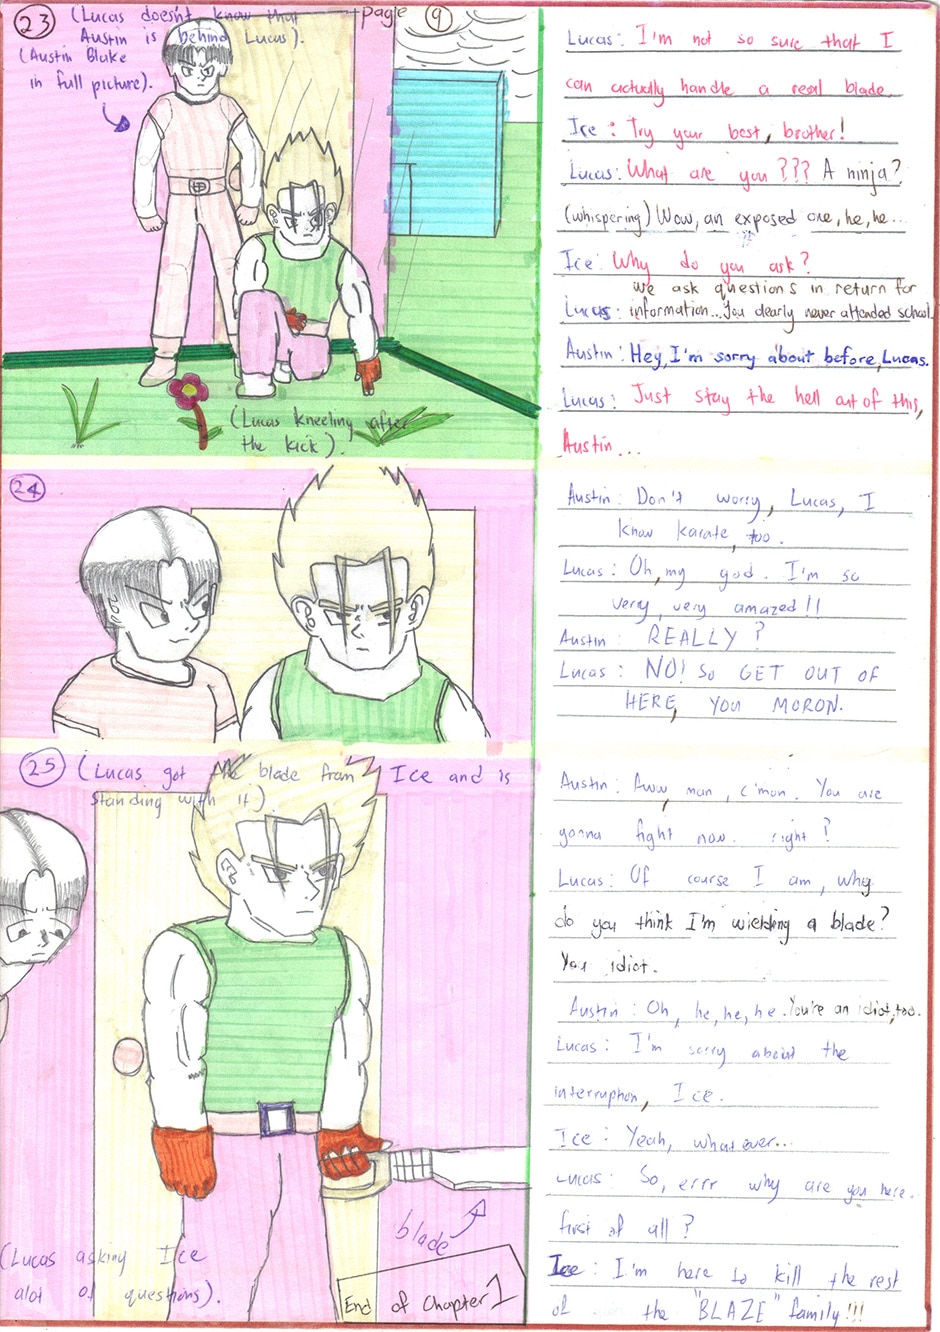 23 (Lucas doesn't know that
Austin is behind Lucas).
(Austin Blake
in full picture).
page 9
(Lucas kneeling after
the kick).
Lucas: I'm not so sure that I
can actually handle a real blade.
Ice: Try your best, brother!
Lucas: What are you??? A ninja?
(whispering) Wow, an exposed one, he, he...
Ice: Why do you ask?
we ask questions in return for
Lucas: information...You clearly never attended school.
Austin: Hey, I'm sorry about before, Lucas.
Lucas: Just stay the hell out of this,
Austin...
24
Austin: Don't worry, Lucas, I
know karate, too.
Lucas: Oh, my god. I'm so
very, very amazed!!
Austin: REALLY?
Lucas: NO! So GET OUT OF
HERE, YOU MORON.
25 (Lucas got the blade from Ice and is
standing with it).
blade
(Lucas asking Ice
alot of questions).
End of Chapter 1
Austin: Aww, man, c'mon. You are
gonna fight now. right?
Lucas: Of course I am, why
do you think I'm wielding a blade?
You idiot.
Austin: Oh, he, he, he. You're an idiot, too.
Lucas: I'm sorry about the
interruption, Ice.
Ice: Yeah, whatever...
Lucas: So, errr why are you here.
first of all?
Ice: I'm here to kill the rest
of the "BLAZE" family!!!